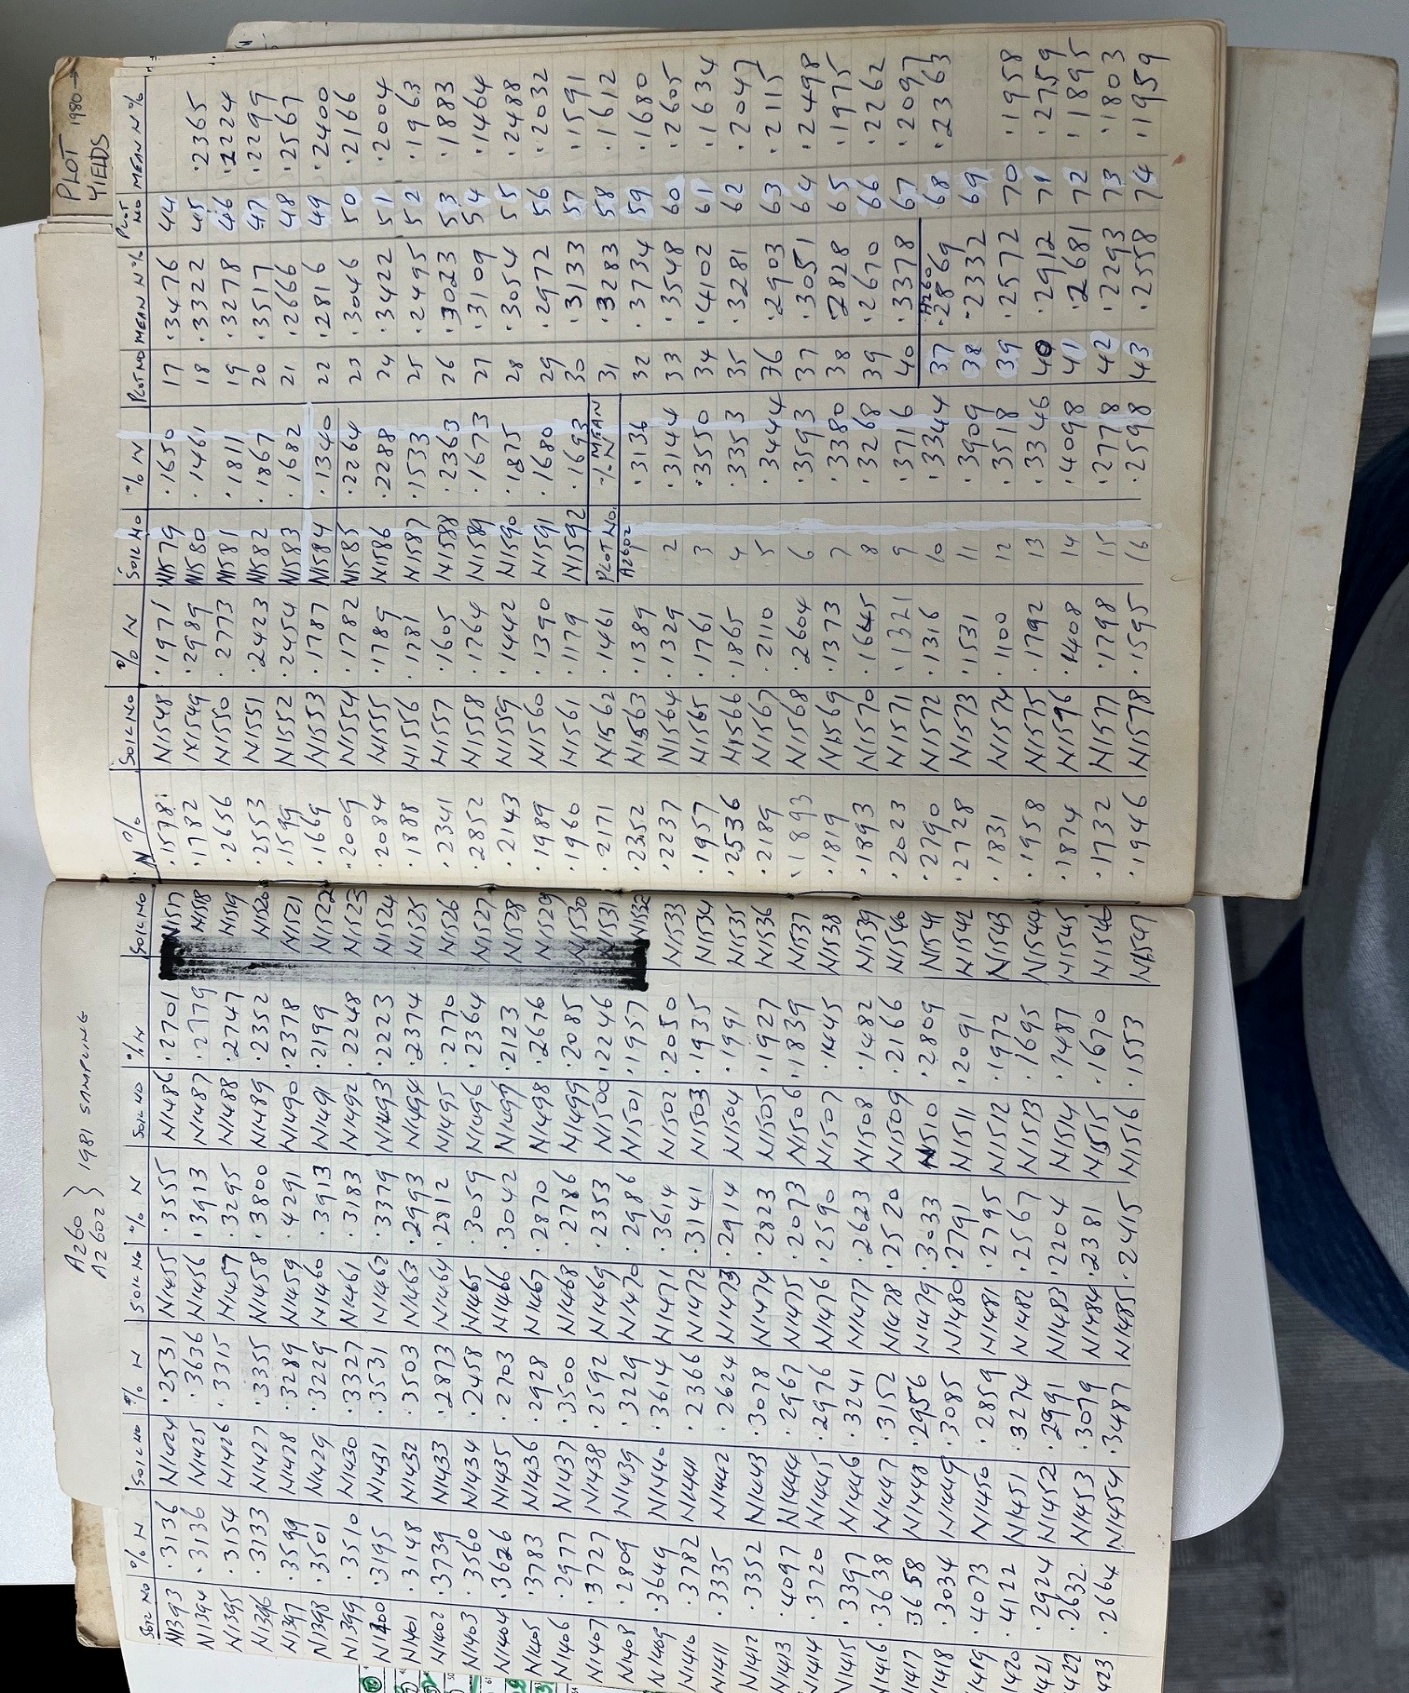 A260 } 1981 SAMPLING
A2602
Soil No %N Soil No %N Soil No %N Soil No %N Soil No
N1393 .3136 N1424 .2531 N1455 .3555 N1486 .2701 N1517
N1394 .3136 N1425 .3636 N1456 .3913 N1487 .2779 N1518
N1395 .3154 N1426 .3315 N1457 .3295 N1488 .2747 N1519
N1396 .3133 N1427 .3355 N1458 .3800 N1489 .2352 N1520
N1397 .3599 N1428 .3289 N1459 .4291 N1490 .2378 N1521
N1398 .3501 N1429 .3229 N1460 .3913 N1491 .2199 N1522
N1399 .3510 N1430 .3327 N1461 .3183 N1492 .2248 N1523
N1400 .3195 N1431 .3531 N1462 .3379 N1493 .2223 N1524
N1401 .3148 N1432 .3503 N1463 .2993 N1494 .2374 N1525
N1402 .3739 N1433 .2873 N1464 .2812 N1495 .2770 N1526
N1403 .3560 N1434 .2458 N1465 .3059 N1496 .2364 N1527
N1404 .3626 N1435 .2703 N1466 .3042 N1497 .2123 N1528
N1405 .3783 N1436 .2928 N1467 .2870 N1498 .2676 N1529
N1406 .2977 N1437 .3500 N1468 .2786 N1499 .2085 N1530
N1407 .3727 N1438 .2592 N1469 .2353 N1500 .2246 N1531
N1408 .2809 N1439 .3229 N1470 .2986 N1501 .1957 N1532
N1409 .3649 N1440 .3614 N1471 .3614 N1502 .2050 N1533
N1410 .3782 N1441 .2366 N1472 .3141 N1503 .1935 N1534
N1411 .3335 N1442 .2624 N1473 .2914 N1504 .1991 N1535
N1412 .3352 N1443 .3078 N1474 .2823 N1505 .1927 N1536
N1413 .4097 N1444 .2967 N1475 .2073 N1506 .1839 N1537
N1414 .3720 N1445 .2976 N1476 .2590 N1507 .1445 N1538
N1415 .3397 N1446 .3241 N1477 .2623 N1508 .1482 N1539
N1416 .3638 N1447 .3152 N1478 .2520 N1509 .2166 N1540
N1417 .3658 N1448 .2956 N1479 .3033 N1510 .2809 N1541
N1418 .3034 N1449 .3085 N1480 .2791 N1511 .2091 N1542
N1419 .4073 N1450 .2859 N1481 .2795 N1512 .1972 N1543
N1420 .4122 N1451 .3274 N1482 .2567 N1513 .1695 N1544
N1421 .2924 N1452 .2991 N1483 .2204 N1514 .1487 N1545
N1422 .2632 N1453 .3079 N1484 .2381 N1515 .1670 N1546
N1423 .2664 N1454 .3487 N1485 .2415 N1516 .1553 N1547
PLOT 1980→
YIELDS
N% Soil No %N Soil No %N Plot No MEAN N% Plot No MEAN N%
.1578 N1548 .1971 N1579 .1650 17 .3476 44
.1782 N1549 .2989 N1580 .1461 18 .3322 45 .2365
.2656 N1550 .2773 N1581 .1811 19 .3278 46 .2224
.2553 N1551 .2423 N1582 .1867 20 .3517 47 .2299
.1599 N1552 .2454 N1583 .1682 21 .2666 48 .2567
.1669 N1553 .1787 N1584 .1340 22 .2816 49 .2400
.2009 N1554 .1782 N1585 .2264 23 .3046 50 .2166
.2084 N1555 .1789 N1586 .2288 24 .3422 51 .2004
.1888 N1556 .1781 N1587 .1533 25 .2495 52 .1963
.2341 N1557 .1605 N1588 .2363 26 .3023 53 .1883
.2852 N1558 .1764 N1589 .1673 27 .3109 54 .1464
.2143 N1559 .1442 N1590 .1875 28 .3054 55 .2488
.1989 N1560 .1390 N1591 .1680 29 .2972 56 .2032
.1960 N1561 .1179 N1592 .1693 30 .3133 57 .1591
.2171 N1562 .1461 PLOT No. %N MEAN 31 .3283 58 .1612
.2352 N1563 .1389 A2602 1 .3136 32 .3734 59 .1680
.2237 N1564 .1329 2 .3144 33 .3548 60 .2605
.1957 N1565 .1761 3 .3550 34 .4102 61 .1634
.2536 N1566 .1865 4 .3353 35 .3281 62 .2047
.2189 N1567 .2110 5 .3444 36 .2903 63 .2115
.1893 N1568 .2604 6 .3593 37 .3051 64 .2498
.1819 N1569 .1373 7 .3380 38 .2828 65 .1975
.1893 N1570 .1645 8 .3268 39 .2670 66 .2262
.2023 N1571 .1321 9 .3716 40 .3378 67 .2097
.2790 N1572 .1316 10 .3344 A260 37 .2869 68 .2363
.2728 N1573 .1531 11 .3909 38 .2332 69
.1831 N1574 .1100 12 .3518 39 .2572 70 .1958
.1958 N1575 .1792 13 .3346 40 .2912 71 .2759
.1874 N1576 .1408 14 .4098 41 .2681 72 .1895
.1732 N1577 .1798 15 .2778 42 .2293 73 .1803
.1946 N1578 .1595 16 .2598 43 .2558 74 .1959